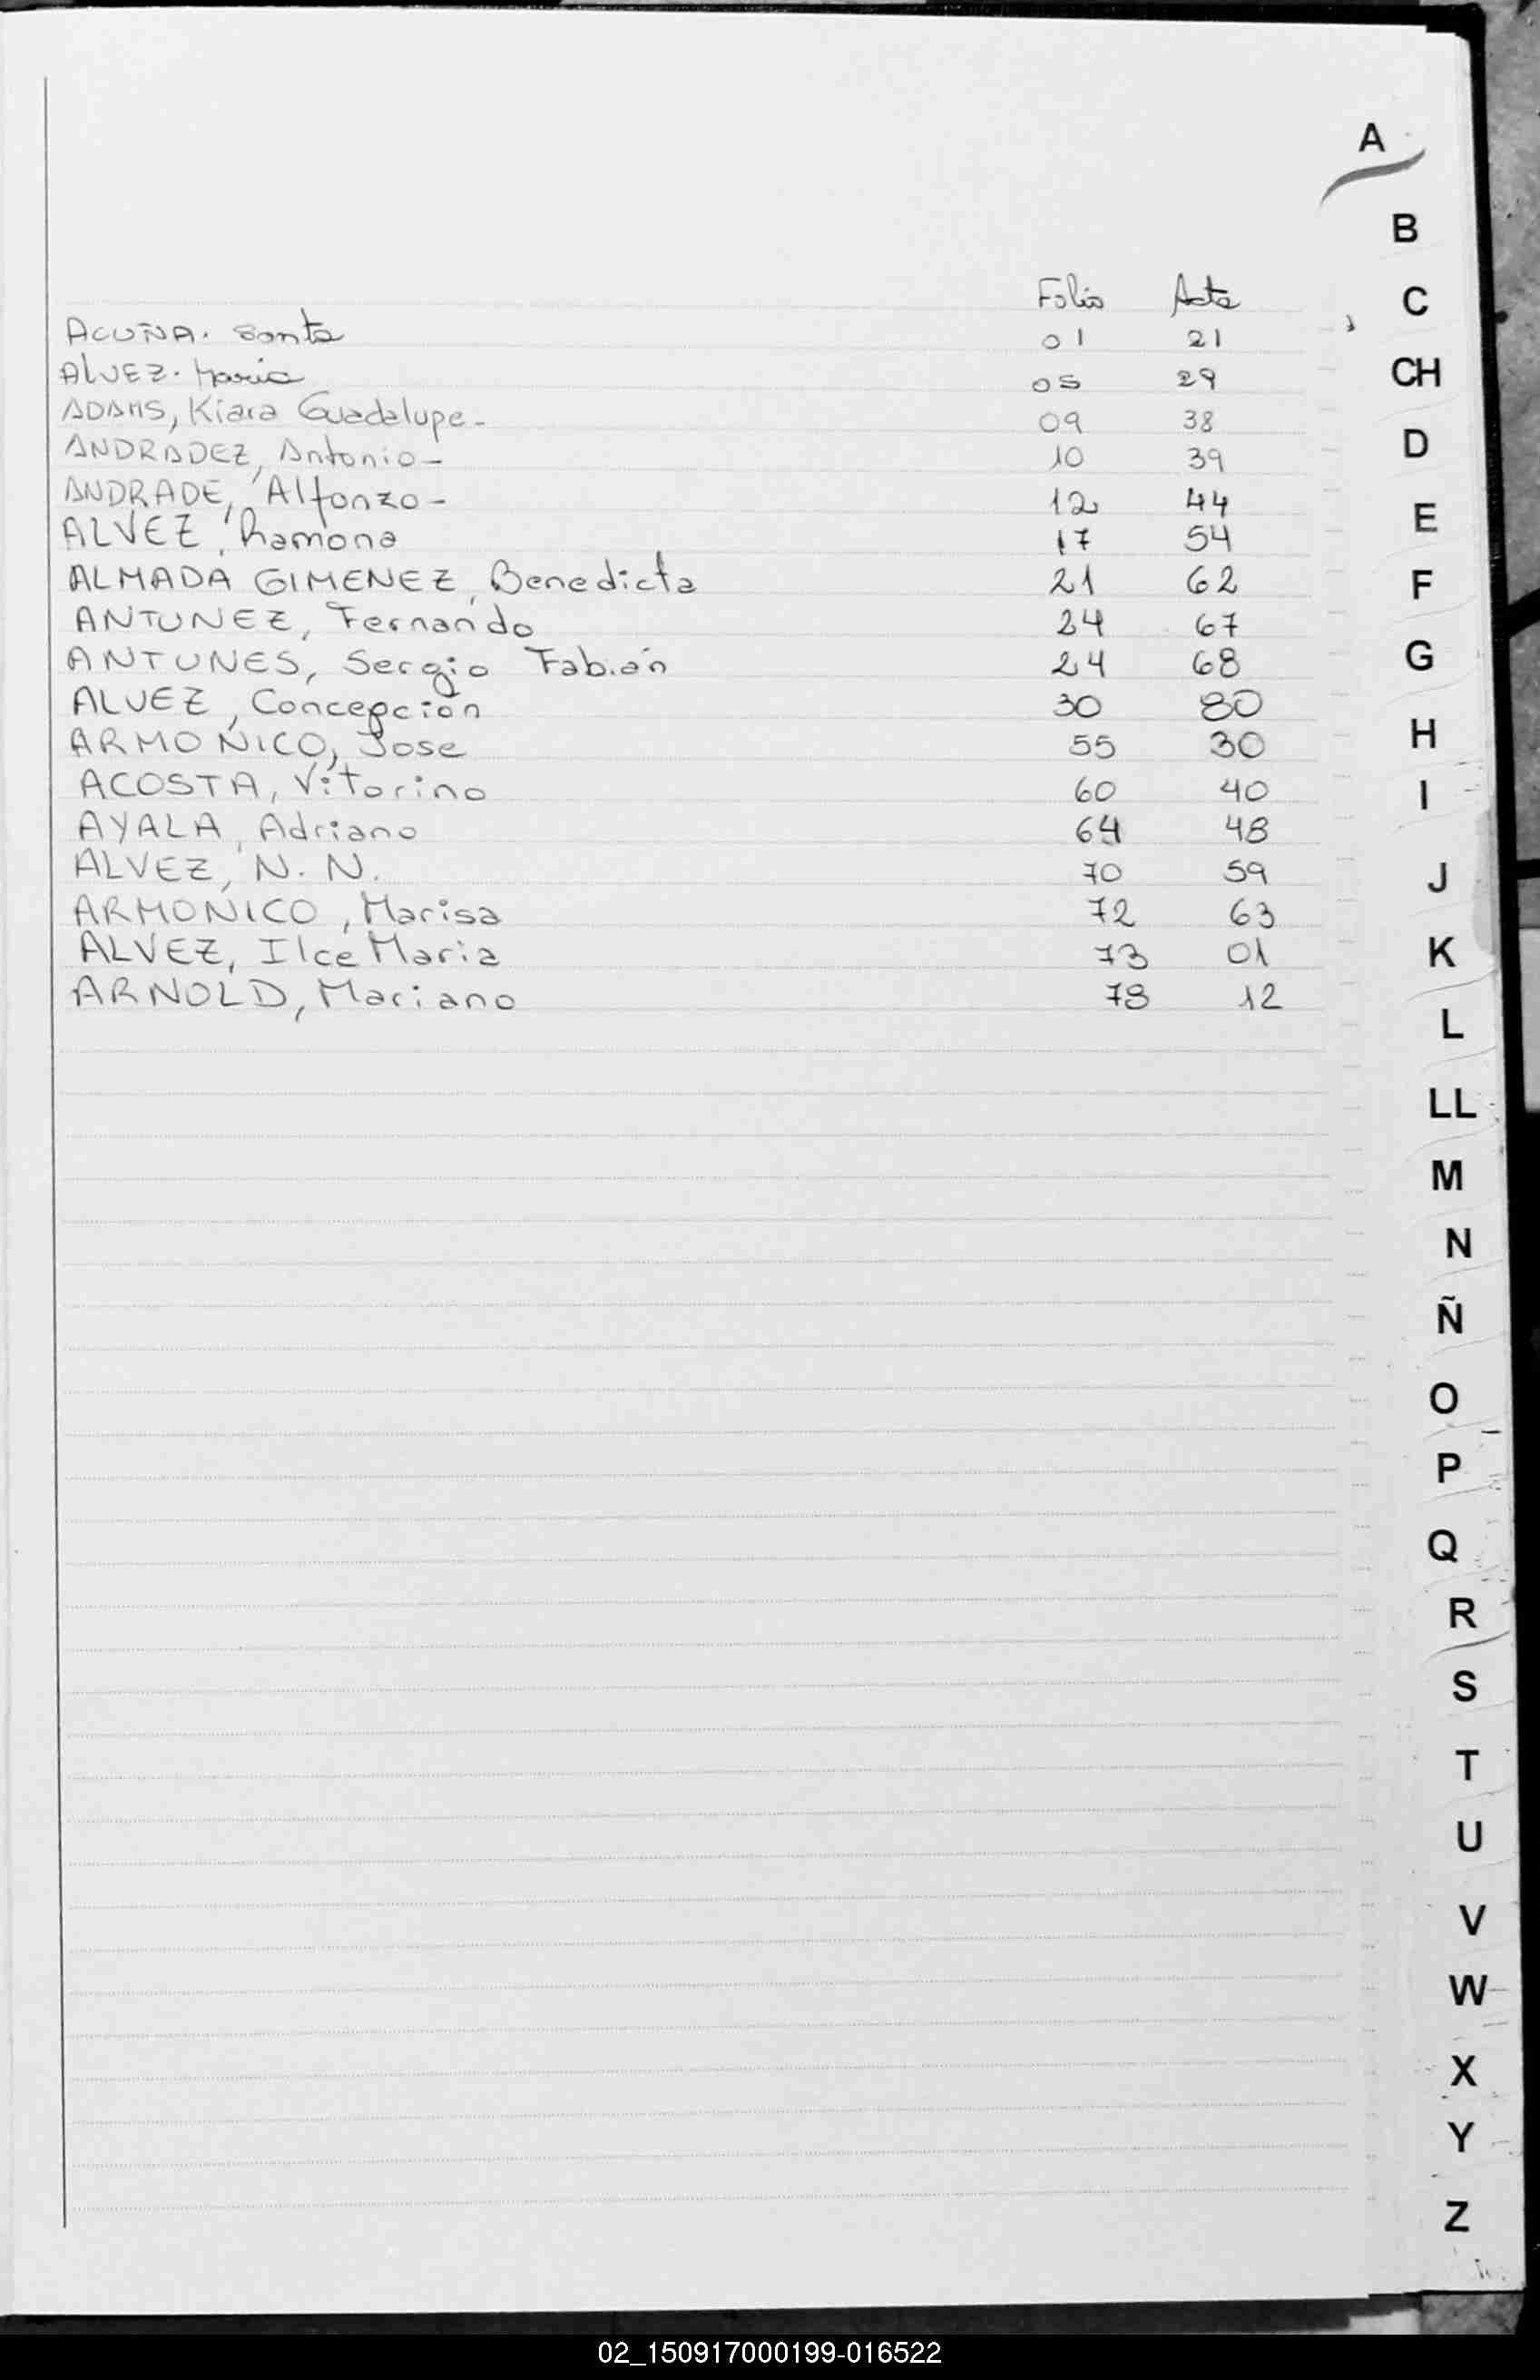 A
B
C
CH
D
E
F
G
H
I
J
K
L
LL
M
N
Ñ
O
P
Q
R
S
T
U
V
W
X
Y
Z
Folio Acta
ACUÑA. Santa 01 21
ALVEZ. Maria 05 29
ADAMS, Kiara Guadalupe- 09 38
ANDRADEZ, Antonio- 10 39
ANDRADE, Alfonzo- 12 44
ALVEZ, Ramona 17 54
ALMADA GIMENEZ, Benedicta 21 62
ANTUNEZ, Fernando 24 67
ANTUNES, Sergio Fabián 24 68
ALVEZ, Concepción 30 80
ARMONICO, Jose 55 30
ACOSTA, Vitorino 60 40
AYALA, Adriano 64 48
ALVEZ, N. N. 70 59
ARMONICO, Marisa 72 63
ALVEZ, Ilce Maria 73 01
ARNOLD, Mariano 78 12
02_150917000199-016522